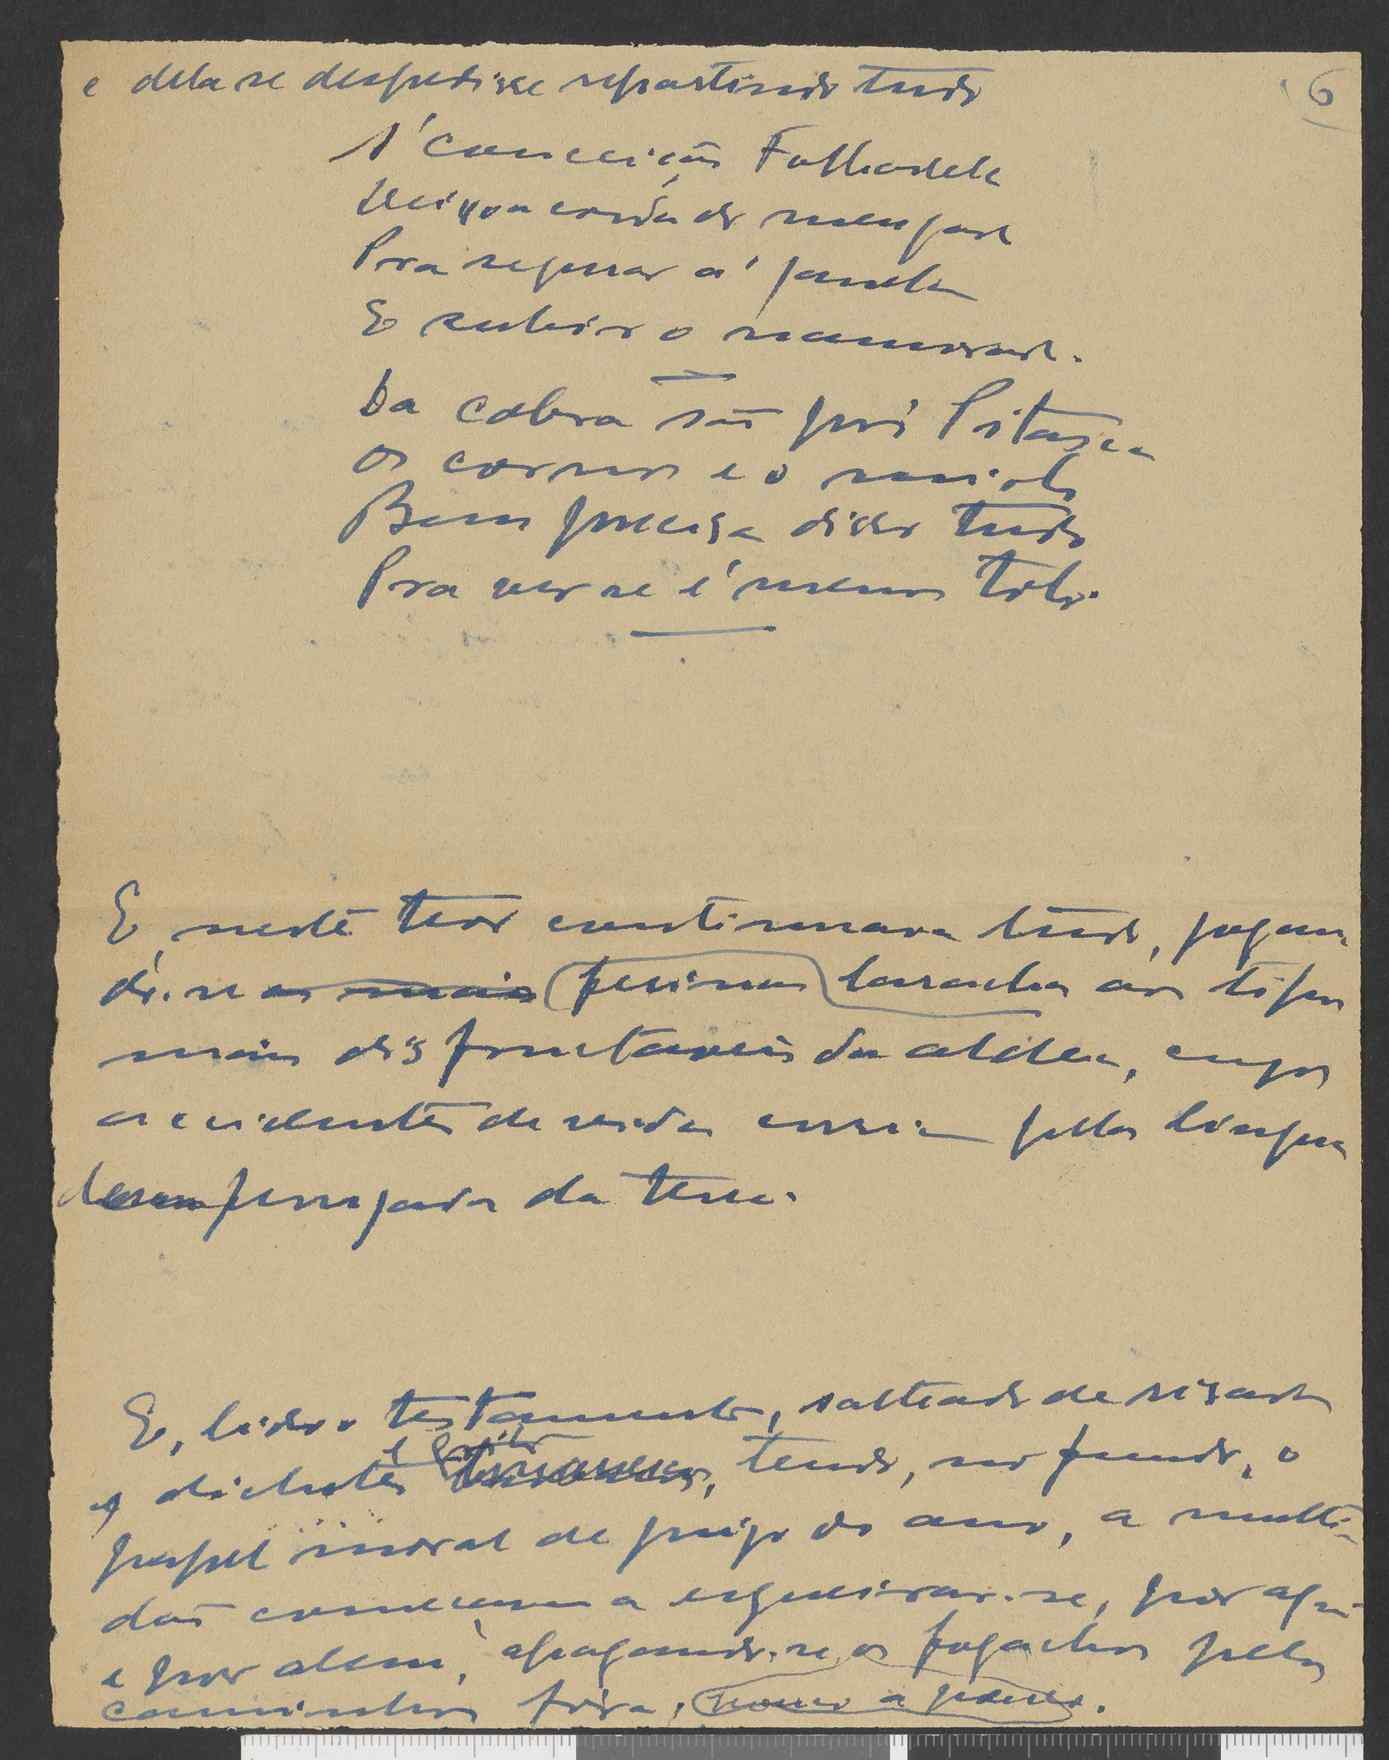 6
e dela se despedisse repartindo tudo
A' Conceição Folhadela
Deixo a corda do meu gado
Pra segurar à janela
E subir o namorado.
Da cobra são prò Pitasca
Os cornos e o miolo
Bem precisa disso tudo
Pra ver se é menos tolo.
E neste teor continuava tudo, jogan
do-se as mais ferinas larachas aos tipos
mais disfrutaveis da aldea, cujos
accidentes de vida corriam pelas linguas
da terra.
E, lido o testamento, salteado de risadas
e dichotes, tendo, no fundo, o
papel moral de juizo do ano, a multi-
dão começava a esgueirar-se, por aqui
e por alem, apagando-se os fogachos pelos
caminhos fora,